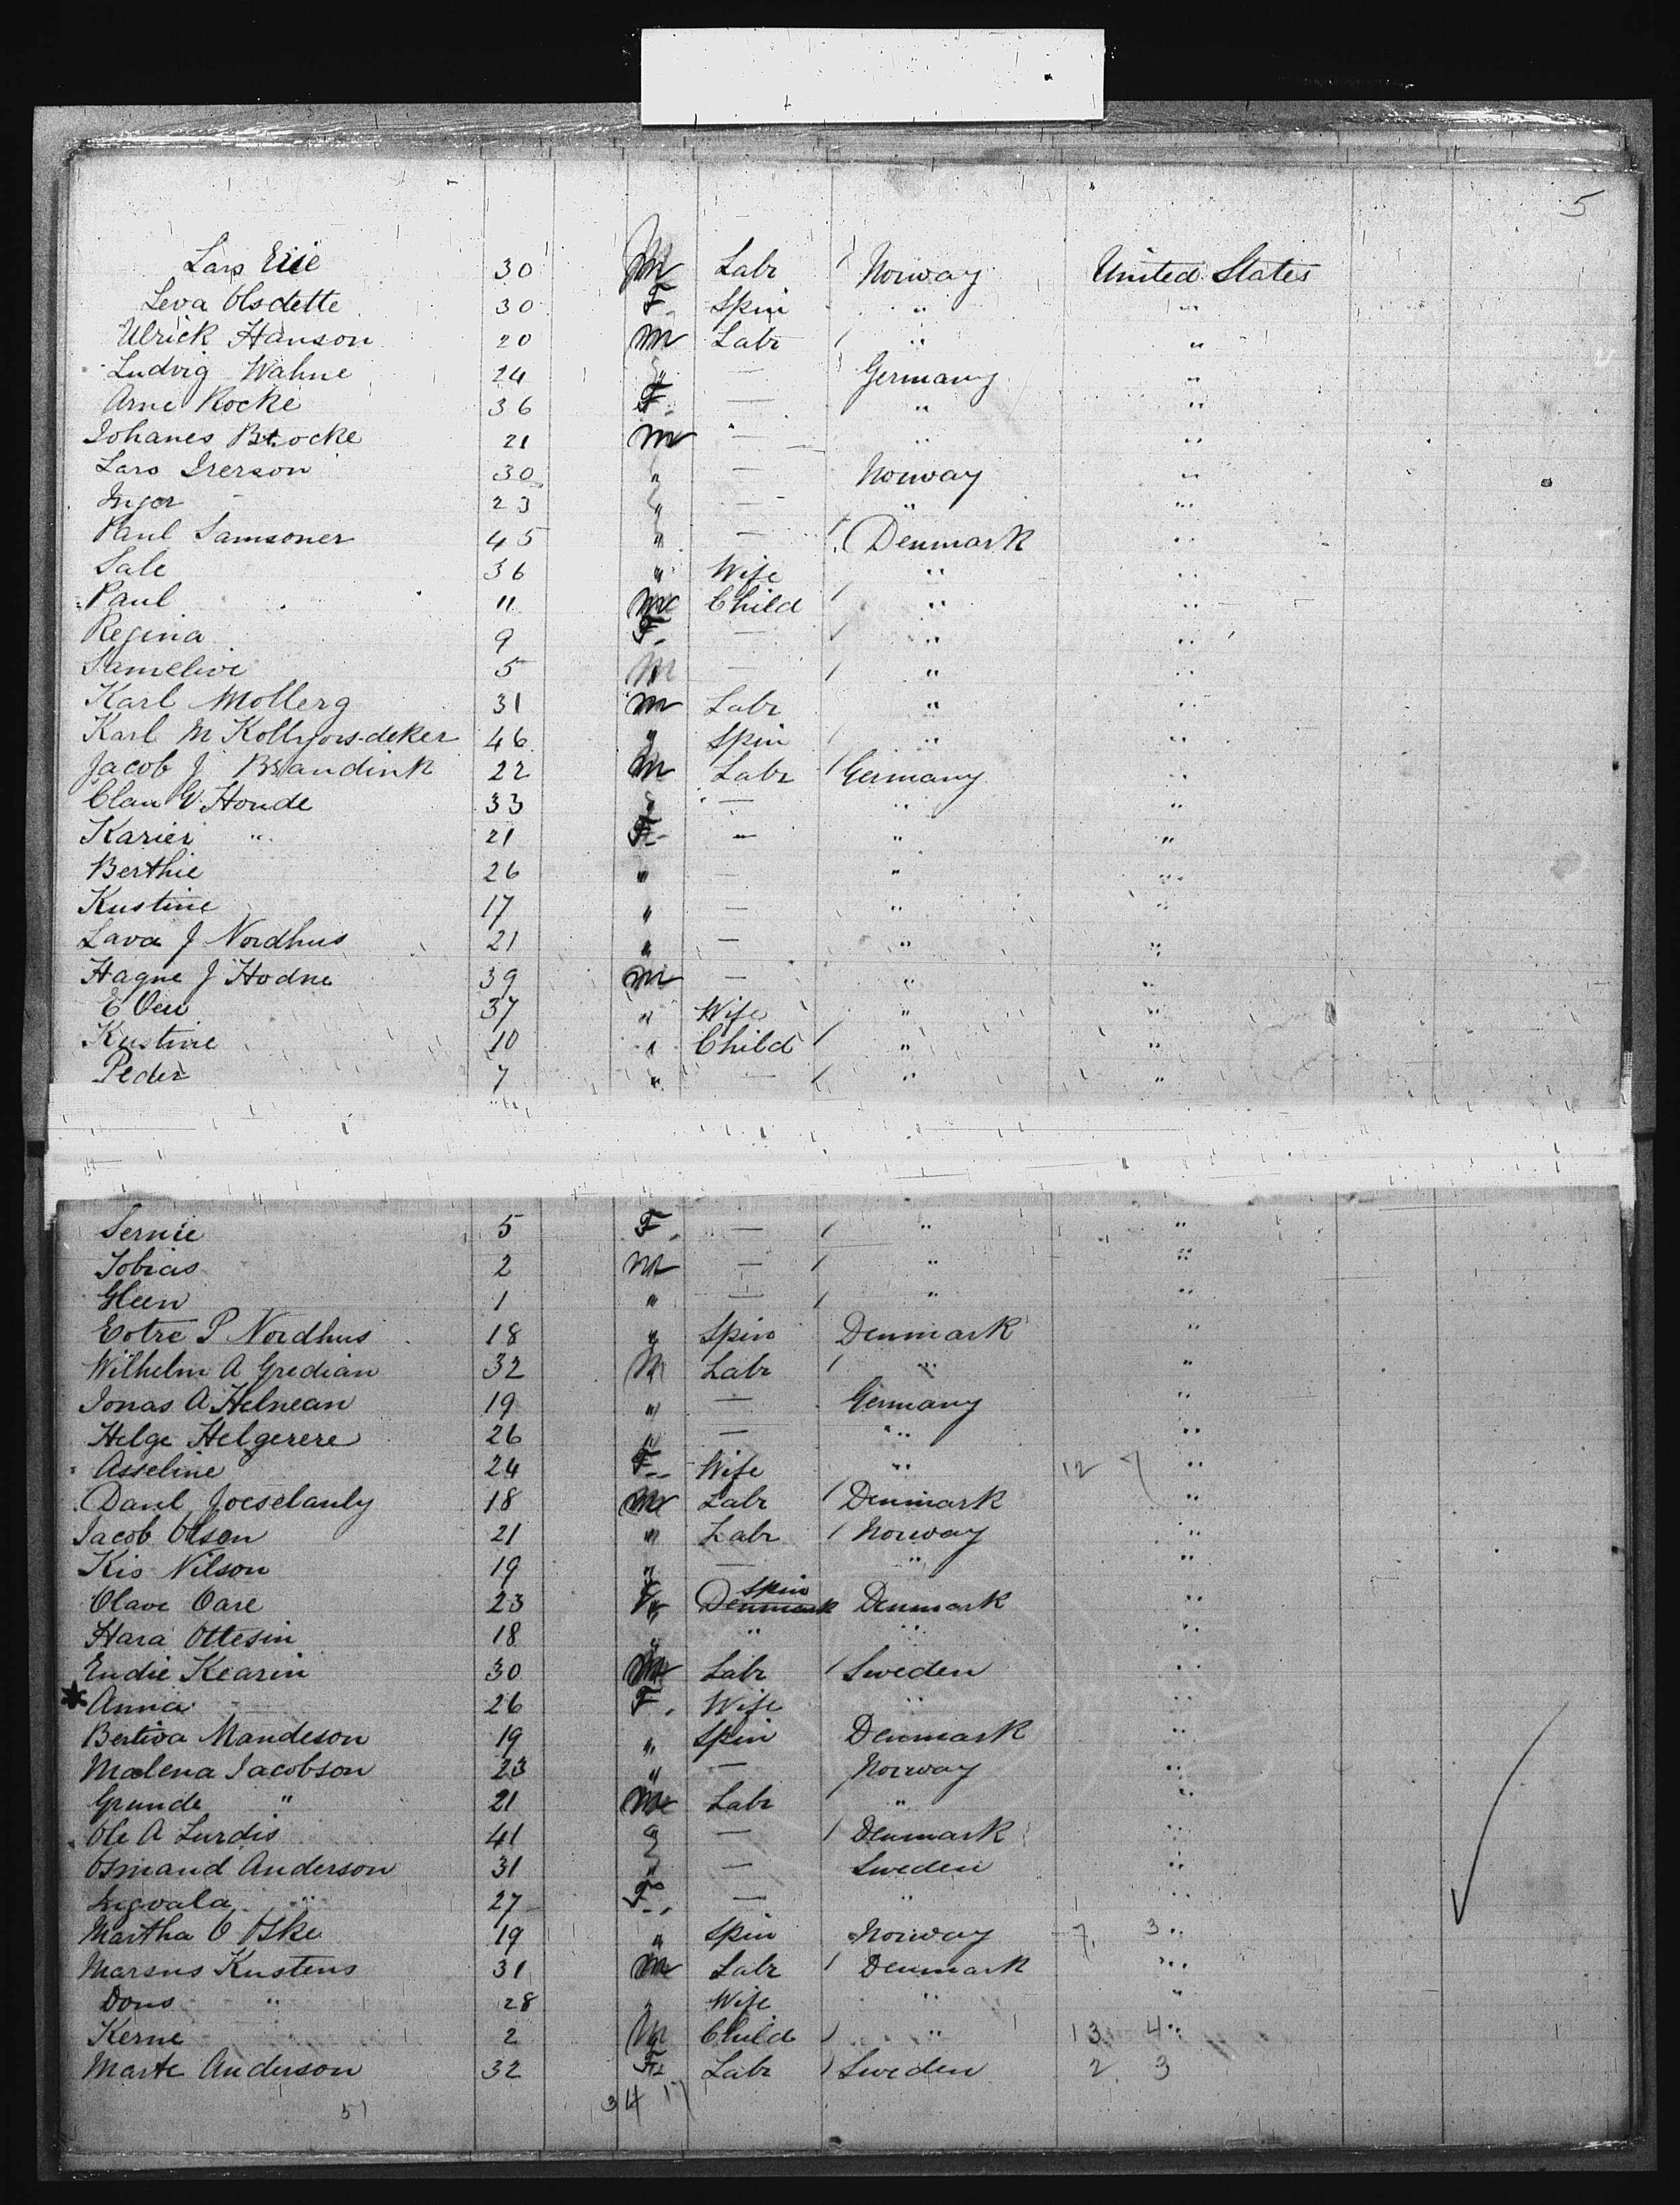 5
Lars Erie 30 M Labr / Norway United States
Leva Olsdette 30 F. Spin " "
Ulrick Hanson 20 M Labr / " "
Ludvig Wahne 24 " — Germany "
Arne Rocke 36 F. — " "
Johanes Brocke 21 M — " "
Lars Irerson 30 " — Norway "
Inger - 23 " — " "
Paul Samsoner 45 " — / Denmark "
Sale 36 " Wife " "
Paul 11 M Child / " "
Regina 9 F. — / " "
Samelive 5 M — / " "
Karl Mollerg 31 M Labr " "
Karl M Kollyors-deker 46 " Spin / " "
Jacob J Brandink 22 M Labr / Germany "
Clau G. Honde 33 " — " "
Karier " 21 F — " "
Berthie 26 " — " "
Kustine 17 " — " "
Lava J Nordhus 21 " — " "
Hagne J Hodne 39 M — " "
37 " Wife " "
Kustine 10 " Child / " "
Peder 7 " — / " "
Sernie 5 F. — / " "
Tobias 2 M — / " "
Gleen 1 " — / " "
Eotre P Nordhus 18 " Spin Denmark "
Wilhelm A Gredian 32 M Labr / " "
Jonas A Helnean 19 " — Germany "
Helge Helgerere 26 " — " "
Asseline 24 F. Wife " 12 7 "
Danl Joeselanly 18 M Labr / Denmark "
Jacob Olsen 21 " Labr / Norway "
Kis Nilson 19 " — " "
Olave Oare 23 F Denmark Spin Denmark "
Hara Ottesin 18 " " " "
Endie Kearin 30 M Labr / Sweden "
* Anna 26 F. Wife " "
Bertiva Mandeson 19 " Spin Denmark "
Malena Jacobson 23 " — Norway "
Grunde " 21 M Labr " "
Ole A Lurdis 41 " — / Denmark "
Osmand Anderson 31 " — Sweden "
Ingvala " 27 F. — " "
Martha O Oske 19 " Spin Norway 7 3 "
Marsus Kustens 31 M Labr / Denmark "
Dons " 28 " Wife " "
Kerne 2 M Child / " 13 4 "
Marte Anderson 32 F. Labr / Sweden 2 3
51 34 17